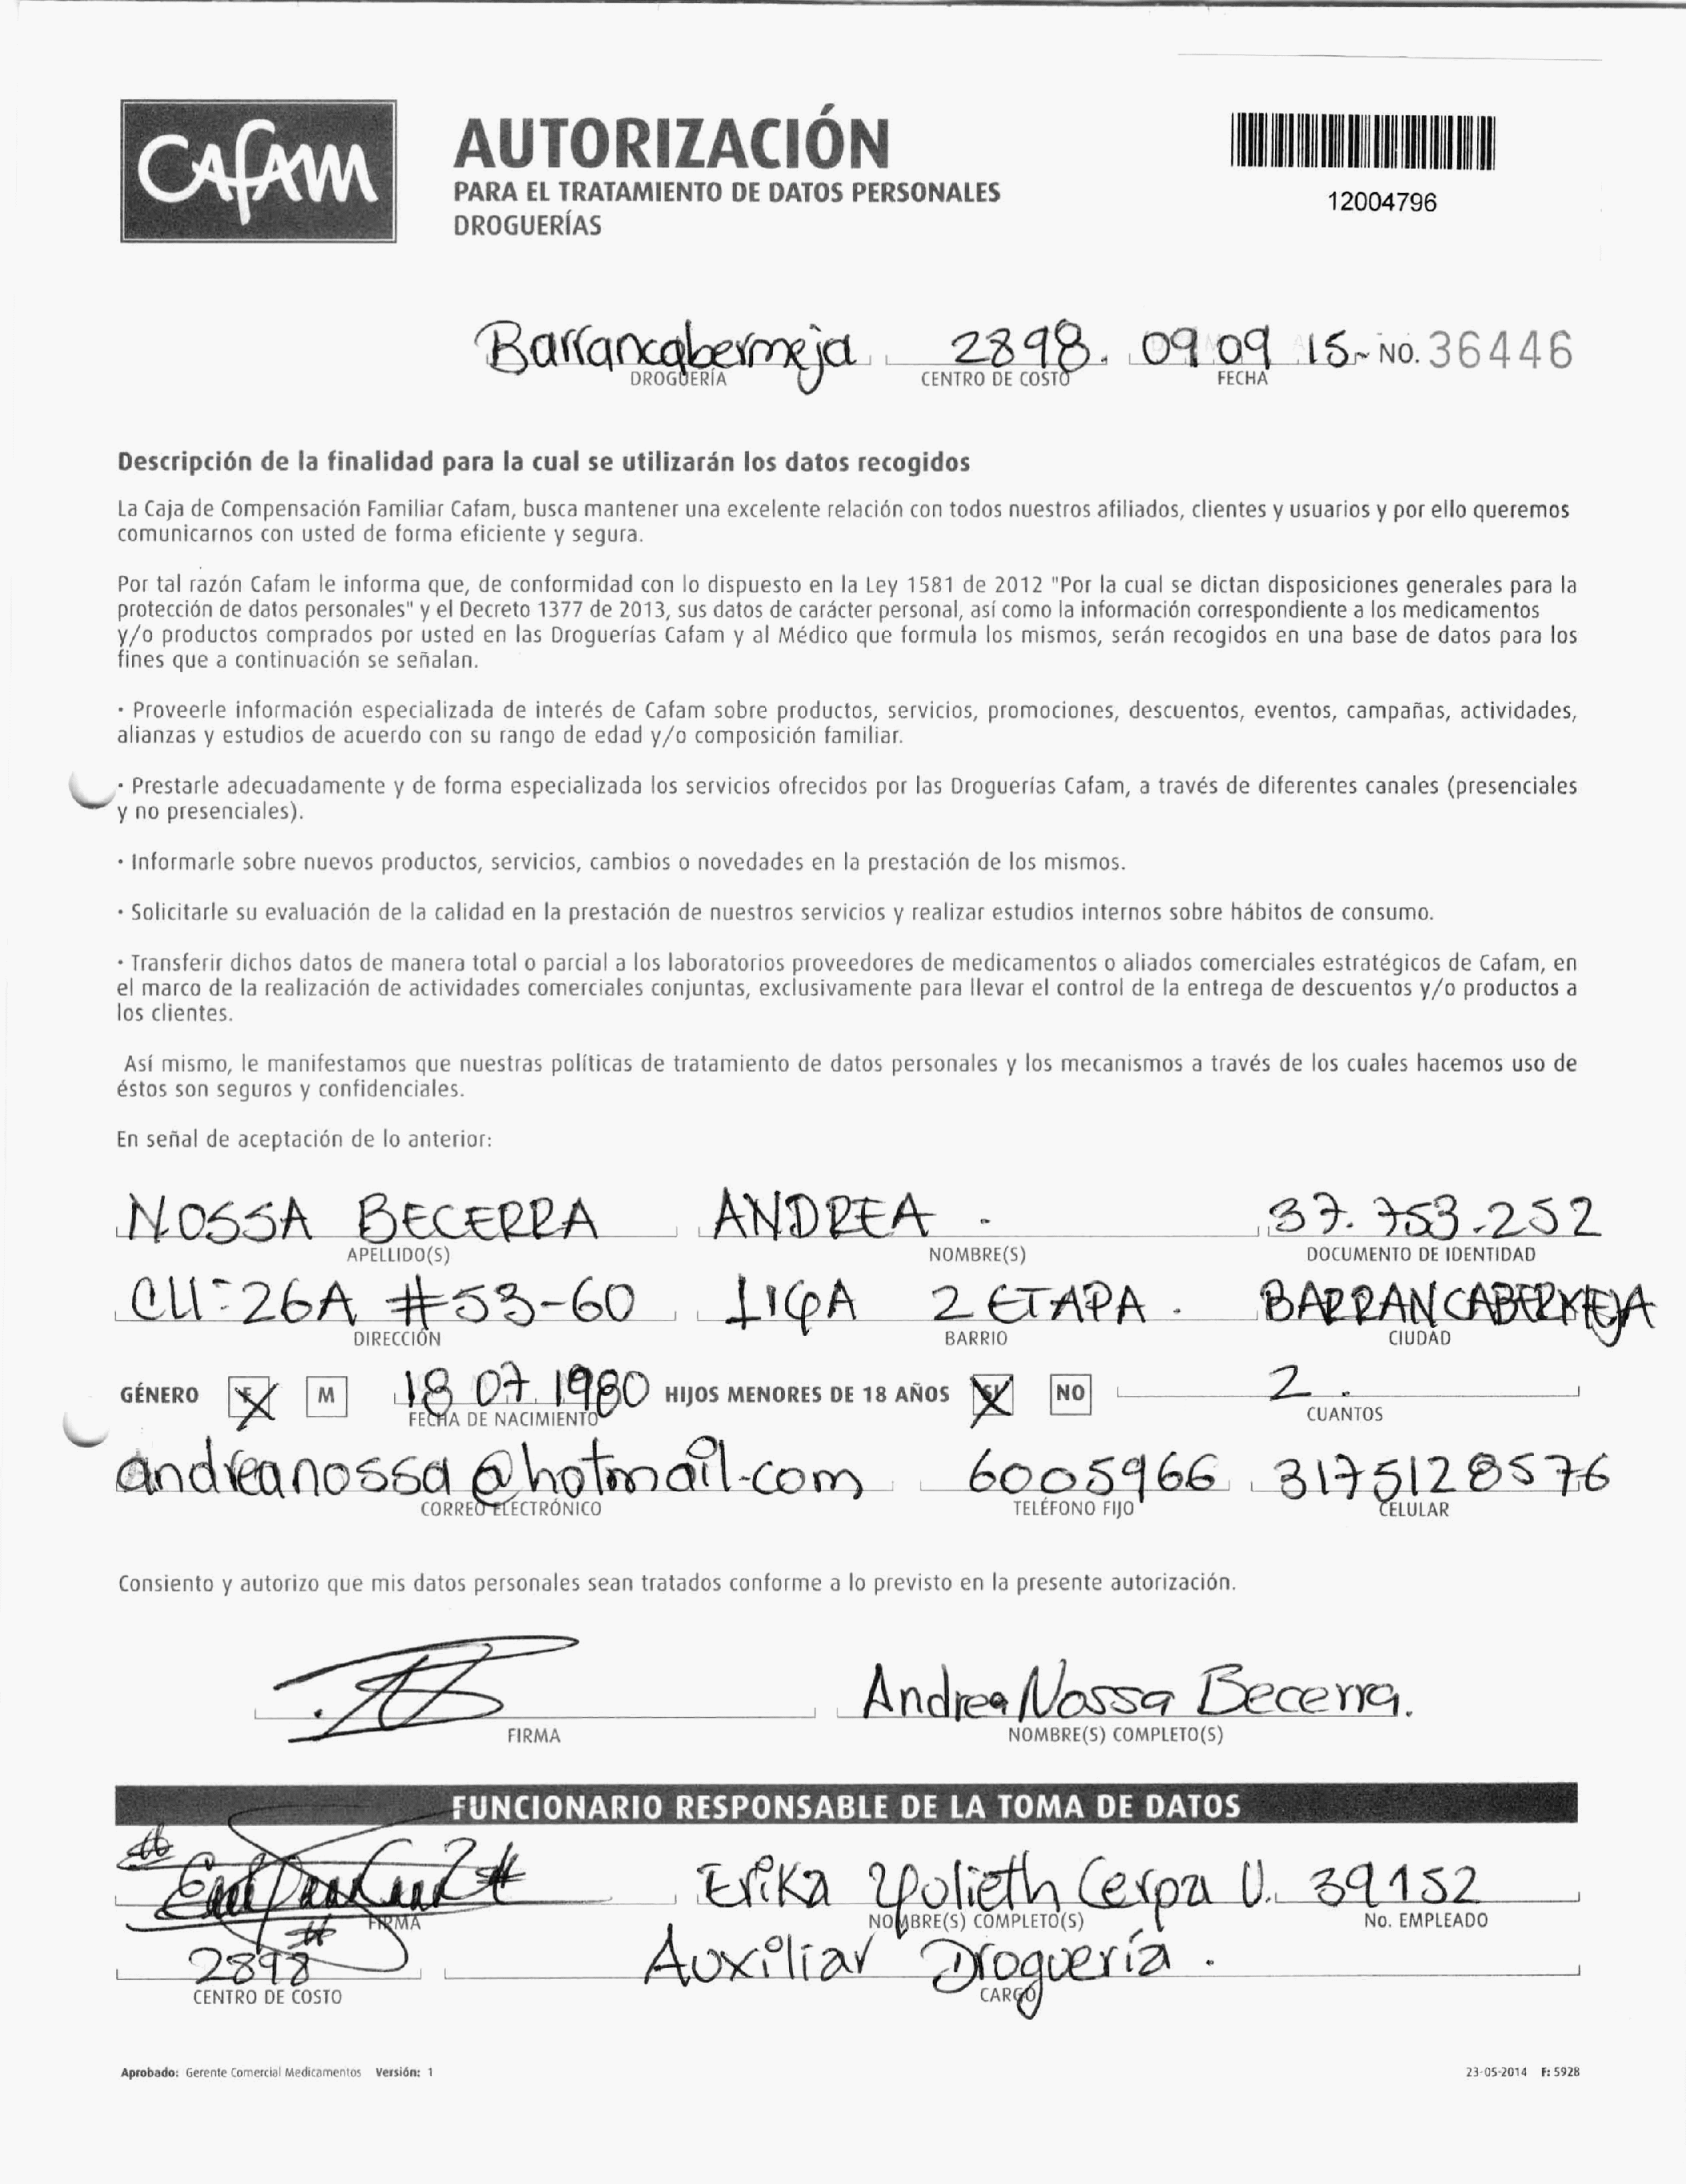 CAFAM
AUTORIZACIÓN
PARA EL TRATAMIENTO DE DATOS PERSONALES
DROGUERÍAS
12004796
Barrancabermeja 2898. 09 09 15 NO. 36446
DROGUERÍA CENTRO DE COSTO FECHA
Descripción de la finalidad para la cual se utilizarán los datos recogidos
La Caja de Compensación Familiar Cafam, busca mantener una excelente relación con todos nuestros afiliados, clientes y usuarios y por ello queremos
comunicarnos con usted de forma eficiente y segura.
Por tal razón Cafam le informa que, de conformidad con lo dispuesto en la Ley 1581 de 2012 "Por la cual se dictan disposiciones generales para la
protección de datos personales" y el Decreto 1377 de 2013, sus datos de carácter personal, así como la información correspondiente a los medicamentos
y/o productos comprados por usted en las Droguerías Cafam y al Médico que formula los mismos, serán recogidos en una base de datos para los
fines que a continuación se señalan.
· Proveerle información especializada de interés de Cafam sobre productos, servicios, promociones, descuentos, eventos, campañas, actividades,
alianzas y estudios de acuerdo con su rango de edad y/o composición familiar.
· Prestarle adecuadamente y de forma especializada los servicios ofrecidos por las Droguerías Cafam, a través de diferentes canales (presenciales
y no presenciales).
· Informarle sobre nuevos productos, servicios, cambios o novedades en la prestación de los mismos.
· Solicitarle su evaluación de la calidad en la prestación de nuestros servicios y realizar estudios internos sobre hábitos de consumo.
· Transferir dichos datos de manera total o parcial a los laboratorios proveedores de medicamentos o aliados comerciales estratégicos de Cafam, en
el marco de la realización de actividades comerciales conjuntas, exclusivamente para llevar el control de la entrega de descuentos y/o productos a
los clientes.
Así mismo, le manifestamos que nuestras políticas de tratamiento de datos personales y los mecanismos a través de los cuales hacemos uso de
éstos son seguros y confidenciales.
En señal de aceptación de lo anterior:
NOSSA BECERRA ANDREA . 37.753.252
APELLIDO(S) NOMBRE(S) DOCUMENTO DE IDENTIDAD
#53-60 2 ETAPA . BARRANCABERMEJA
DIRECCIÓN BARRIO CIUDAD
GÉNERO M 18 07 1980 HIJOS MENORES DE 18 AÑOS SI NO 2 .
FECHA DE NACIMIENTO CUANTOS
andreanossa@hotmail.com 6005966 3175128576
CORREO ELECTRÓNICO TELÉFONO FIJO CELULAR
Consiento y autorizo que mis datos personales sean tratados conforme a lo previsto en la presente autorización.
Andrea Nossa Becerra.
FIRMA NOMBRE(S) COMPLETO(S)
FUNCIONARIO RESPONSABLE DE LA TOMA DE DATOS
Erika Yolieth Cerpa U. 39152
FIRMA NOMBRE(S) COMPLETO(S) No. EMPLEADO
2898 Auxiliar Droguería .
CENTRO DE COSTO CARGO
Aprobado: Gerente Comercial Medicamentos Versión: 1 23-05-2014 F: 5928